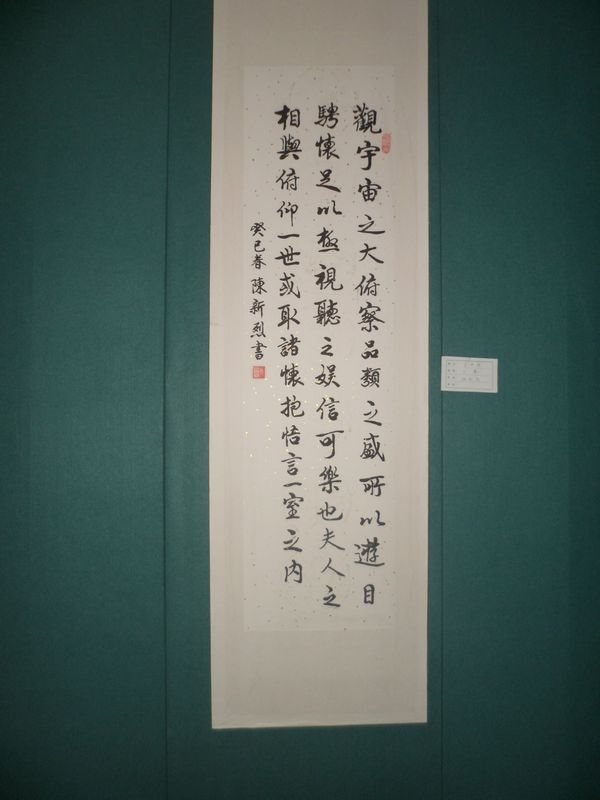 觀宇宙之大俯察品類之盛所以遊目
騁懷足以極視聽之娱信可樂也夫人之
相與俯仰一世或取諸懷抱悟言一室之内
癸巳春陳新烈書